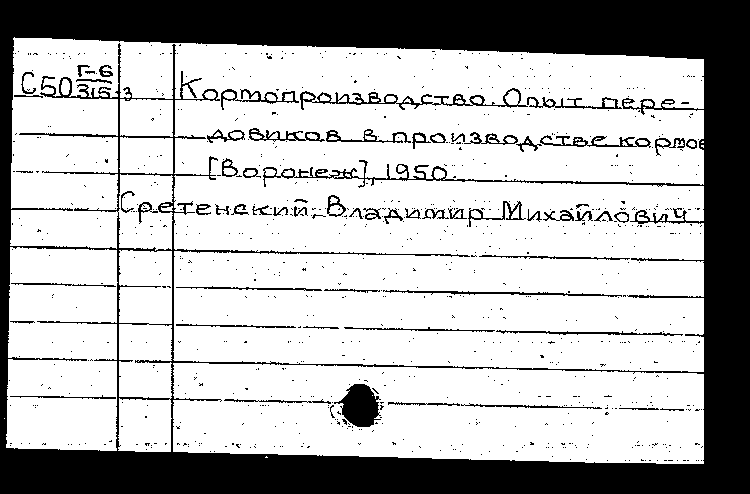 С50 Г-6/315-3 Кормопроизводство. Опыт пере-
довиков в производстве кормов
[Воронеж], 1950.
Сретенский, Владимир Михайлович